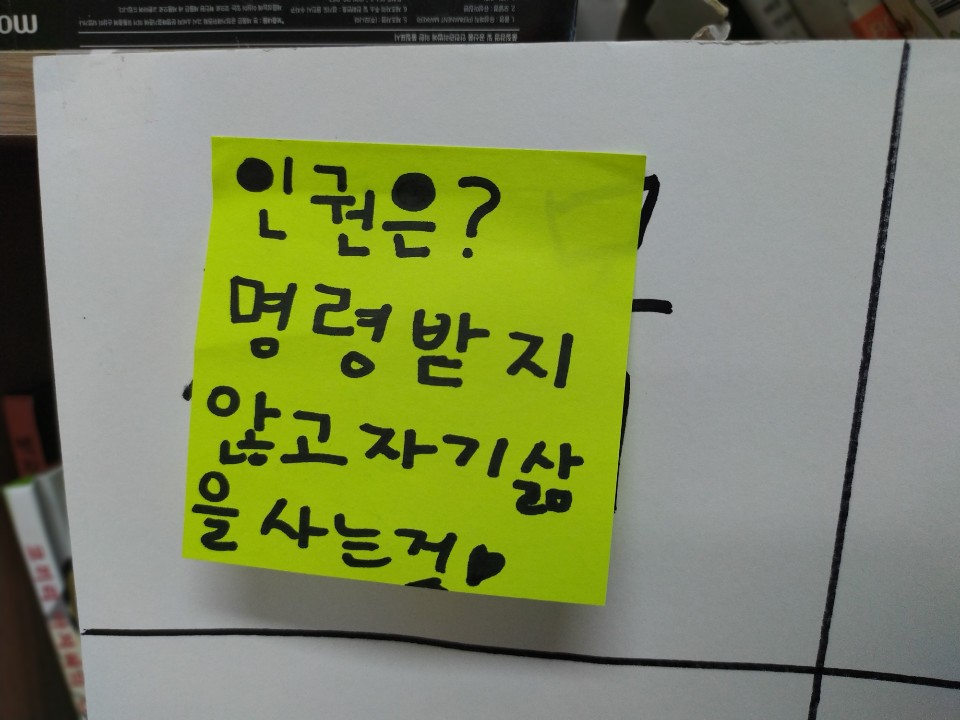 인권은?
명령받지
않고 자기 삶
을 사는 것♥